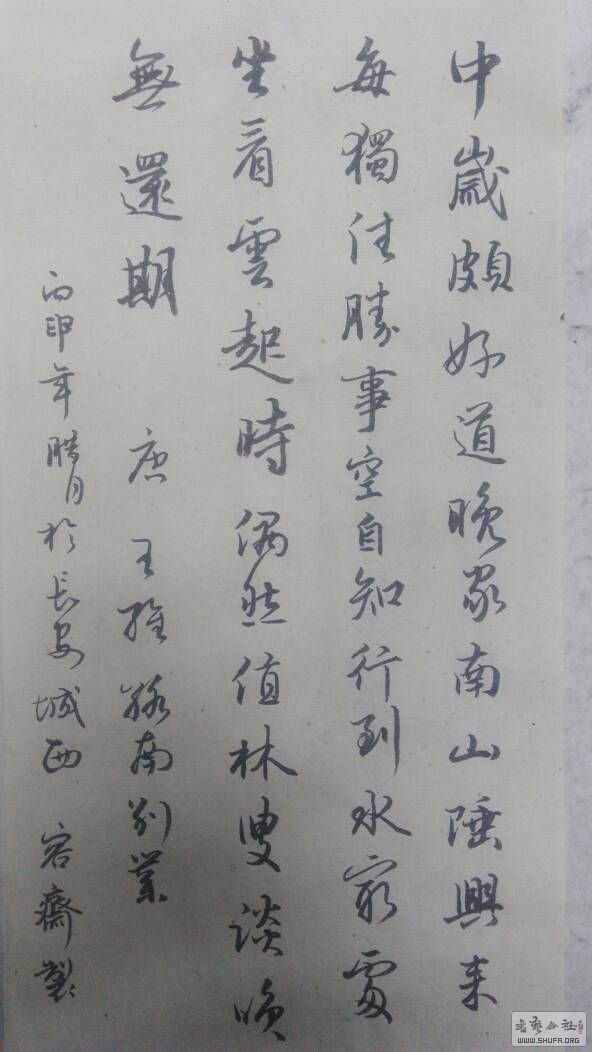 中歲頗好道晚家南山陲興来
每獨往勝事空自知行到水窮處
坐看雲起時偶然值林叟談咲
無還期 唐王維終南別業
丙申年腊月於長安城西 容齋製
书艺公社
WWW.SHUFA.ORG